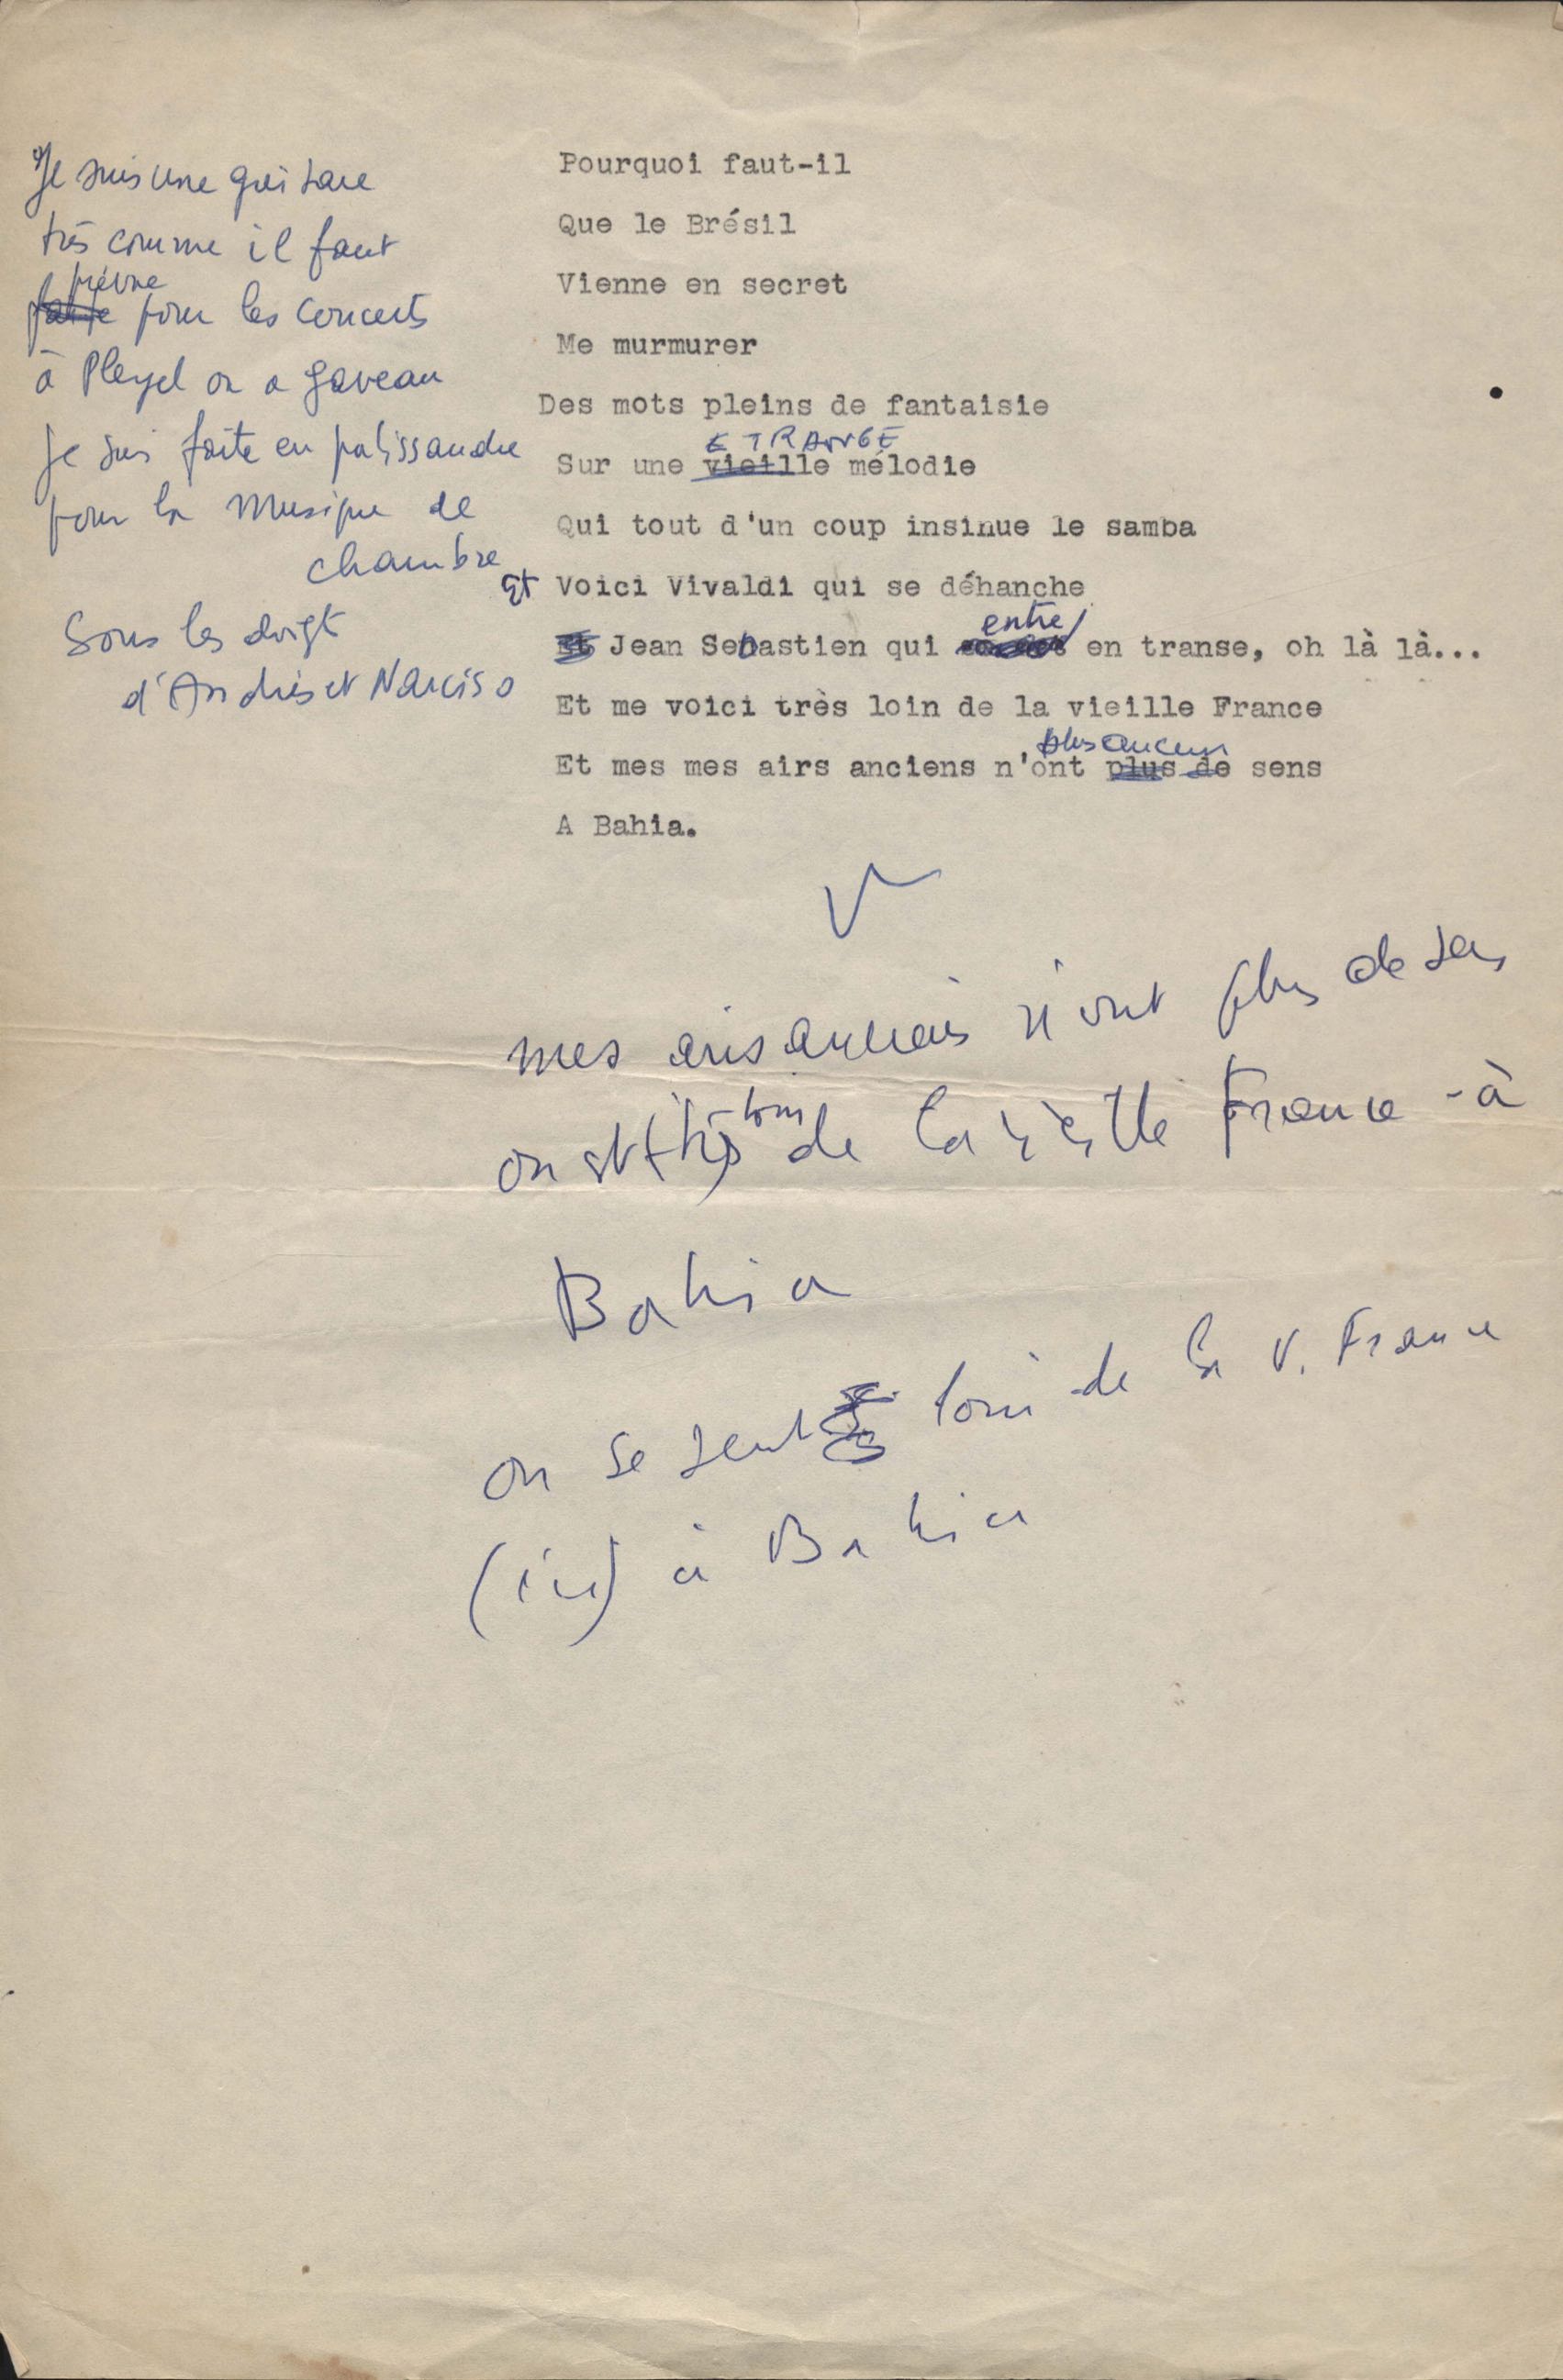 Je suis une guitare
très comme il faut
prévue
faite pour les concerts
à Pleyel ou a gaveau
je suis faite en palissandre
pour la musique de
chambre
Sous les doigts
d'Andrès et Narciso
Pourquoi faut-il
Que le Brésil
Vienne en secret
Me murmurer
Des mots pleins de fantaisie
ETRANGE
Sur une vieille mélodie
Qui tout d'un coup insinue le samba
Et Voici Vivaldi qui se déhanche
entre
Et Jean Sebastien qui en transe, oh là là...
Et me voici très loin de la vieille France
plus aucun
Et mes mes airs anciens n'ont plus de sens
A Bahia.
mes airs anciens n'ont plus de sens
on est très loin de la vieille France - à
Bahia
on se sent loin de la V. France
(ici) à Bahia